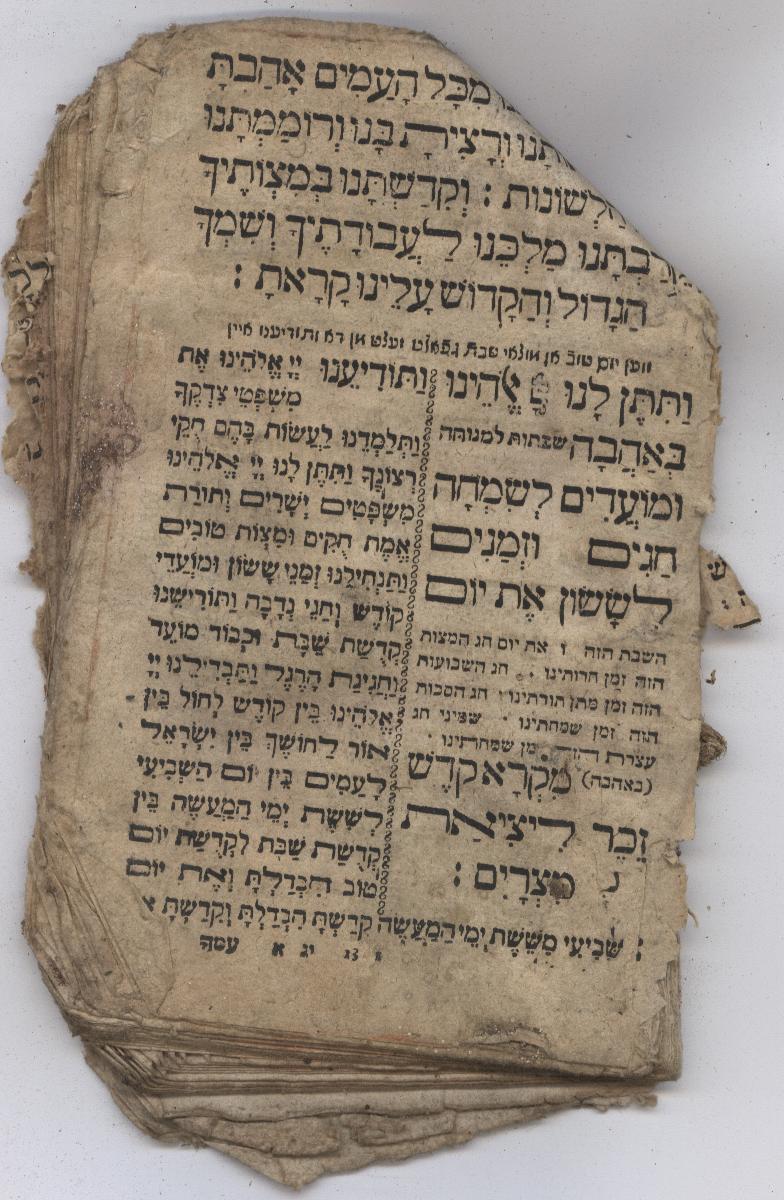 מִכָּל הָעַמִּים אָהַבְתָּ
וְרָצִיתָ בָּנוּ וְרוֹמַמְתָּנוּ
הַלְשׁוֹנוֹת : וְקִדַשְׁתָּנוּ בְּמִצְוֹתֶיךָ
מַלְכֵּנוּ לַעֲבוֹדָתֶיךָ וְשִׁמְךָ
הַגָדוֹל וְהַקָדוֹשׁ עָלֵינוּ קָרָאתָ :
יום טוב אן מוצאי שבת
וַתִּתֶּן לָנוּ
בְּאַהֲבָה שבתות למנוחה
וּמוֹעֲדִים לְשִׂמְחָה
חַגִים וּזְמַנִים
לְשָׂשׂוֹן אֶת יוֹם
השבת הזה ו את יום חג המצות
הזה זמן חרותינו · חג השבועות
הזה זמן מתן תורתינו · חג הסכות
הזה זמן שמחתינו · שמיני חג
עצרת הזה זמן שמחתינו ·
(באהבה) מִקְרָא קֹדֶשׁ
זֵכֶר לִיצִיאַת
מִצְרָיִם :
וַתּוֹדִיעֵנוּ יְיָ אֱלֹהֵינוּ אֶת
מִשְׁפְּטֵי צִדְקֶךָ
וַתְּלַמְּדֵנוּ לַעֲשׂוֹת בָּהֶם חֻקֵי
רְצוֹנֶךָ וַתִּתֶּן לָנוּ יְיָ אֱלֹהֵינוּ
מִשְׁפָּטִים יְשָׁרִים וְתוֹרַת
אֱמֶת חֻקִים וּמִצְוֹת טוֹבִים
וַתַּנְחִילֵנוּ זְמַנֵי שָׂשׂוֹן וּמוֹעֲדֵי
קוֹדֶשׁ וְחַגֵי נְדָבָה וַתּוֹרִישֵׁנוּ
קְדֻשַׁת שַׁבָּת וּכְבוֹד מוֹעֵד
וַחֲגִיגַת הָרֶגֶל וַתַּבְדִילֵנוּ יְיָ
אֱלֹהֵינוּ בֵּין קוֹדֶשׁ לְחוֹל בֵּין
אוֹר לְחוֹשֶׁךְ בֵּין יִשְׂרָאֵל
לָעַמִּים בֵּין יוֹם הַשְּׁבִיעִי
לְשֵׁשֶׁת יְמֵי הַמַעֲשֶׂה בֵּין
קְדֻשַׁת שַׁבָּת לִקְדֻשַׁת יוֹם
טוֹב הִבְדַלְתָּ וְאֶת יוֹם
שְׁבִיעִי מִשֵּׁשֶׁת יְמֵי הַמַעֲשֶׂה קִדַשְׁתָּ הִבְדַלְתָּ וְקִדַשְׁתָּ
יג א עמך